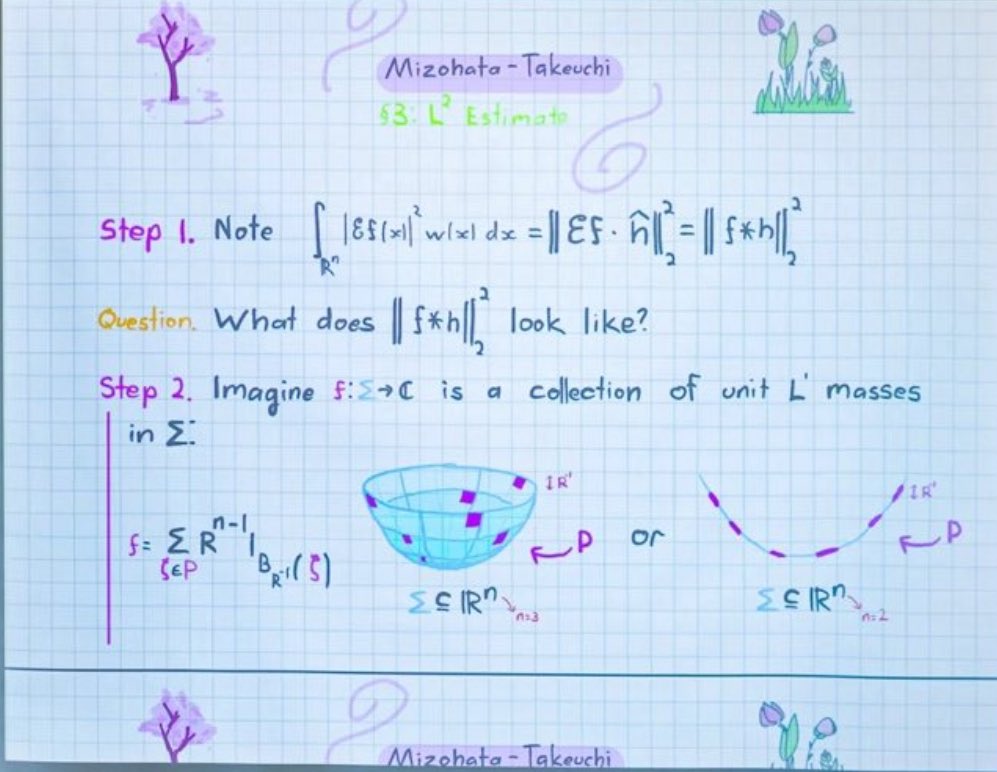 Mizohata-Takeuchi
§3: L² Estimate
Step 1. Note ∫_{ℝⁿ} |Ɛf(x)|² w(x) dx = ‖Ɛf · ĥ‖₂² = ‖f*h‖₂²
Question. What does ‖f*h‖₂² look like?
Step 2. Imagine f: Σ → ℂ is a collection of unit L¹ masses
in Σ:
f = Σ_{ζ∈P} R^{n-1} 1_{B_{R⁻¹}(ζ)}
R⁻¹
P
or
R⁻¹
P
Σ ⊆ ℝⁿ n=3
Σ ⊆ ℝⁿ n=2
Mizohata-Takeuchi